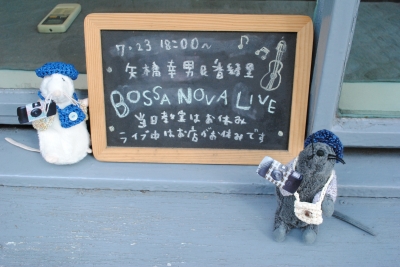 7.23 18:00〜
矢橋幸男&香緒里
BOSSA NOVA LIVE
当日教室はお休み
ライブ中はお店がお休みです